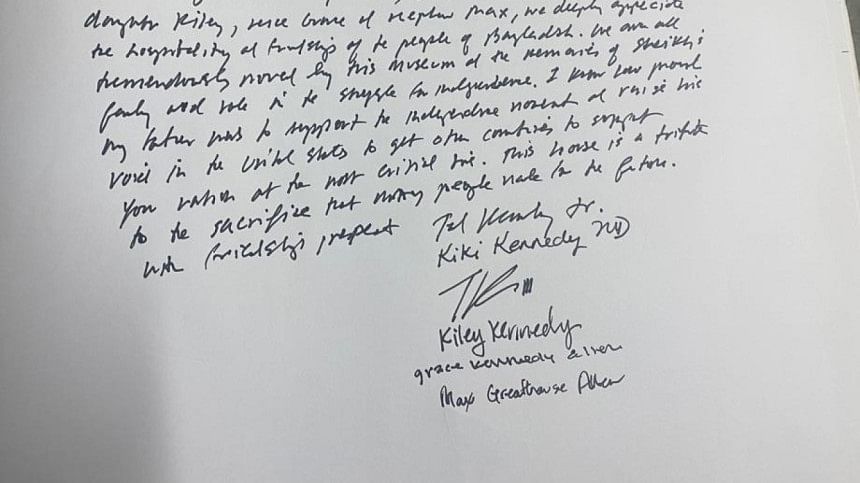 daughter Kiley, niece Grace and nephew Max, we deeply appreciate
the hospitality and friendship of the people of Bangladesh. We are all
tremendously moved by this museum and the memories of Sheikh's
family and role in the struggle for independence. I know how proud
my father was to support the independence movement and raise his
voice in the United States to get other countries to support
your nation at the most critical time. This house is a tribute
to the sacrifice that many people made for the future.
with friendship & respect
Ted Kennedy Jr.
Kiki Kennedy MD
III
Kiley Kennedy
grace kennedy allen
Max Greathouse Allen